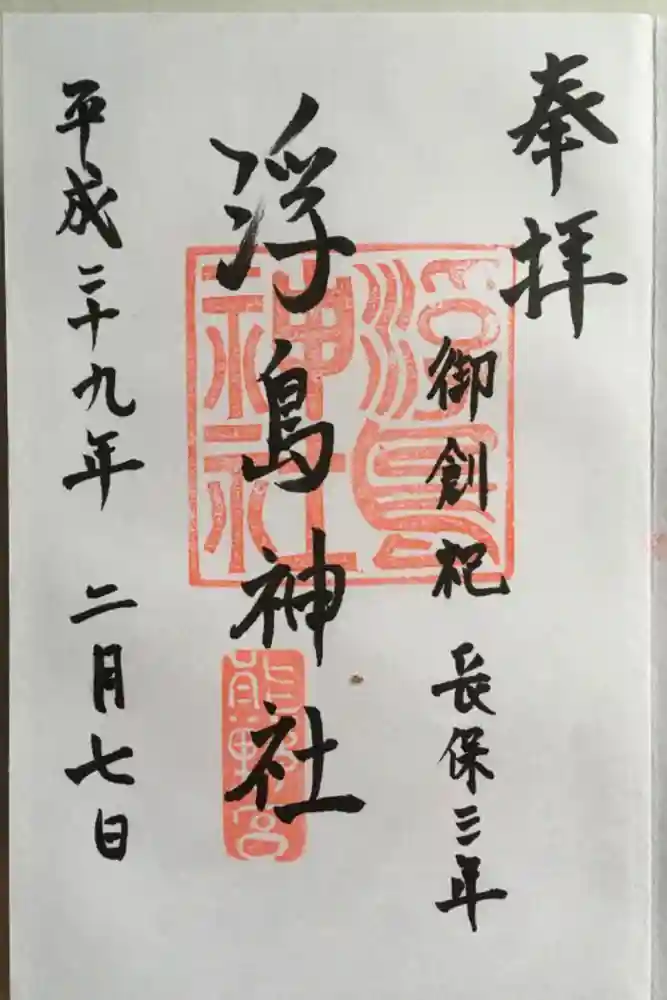 奉拝
御創祀 長保三年
浮島神社
浮島神社
熊野宮
平成二十九年 二月七日